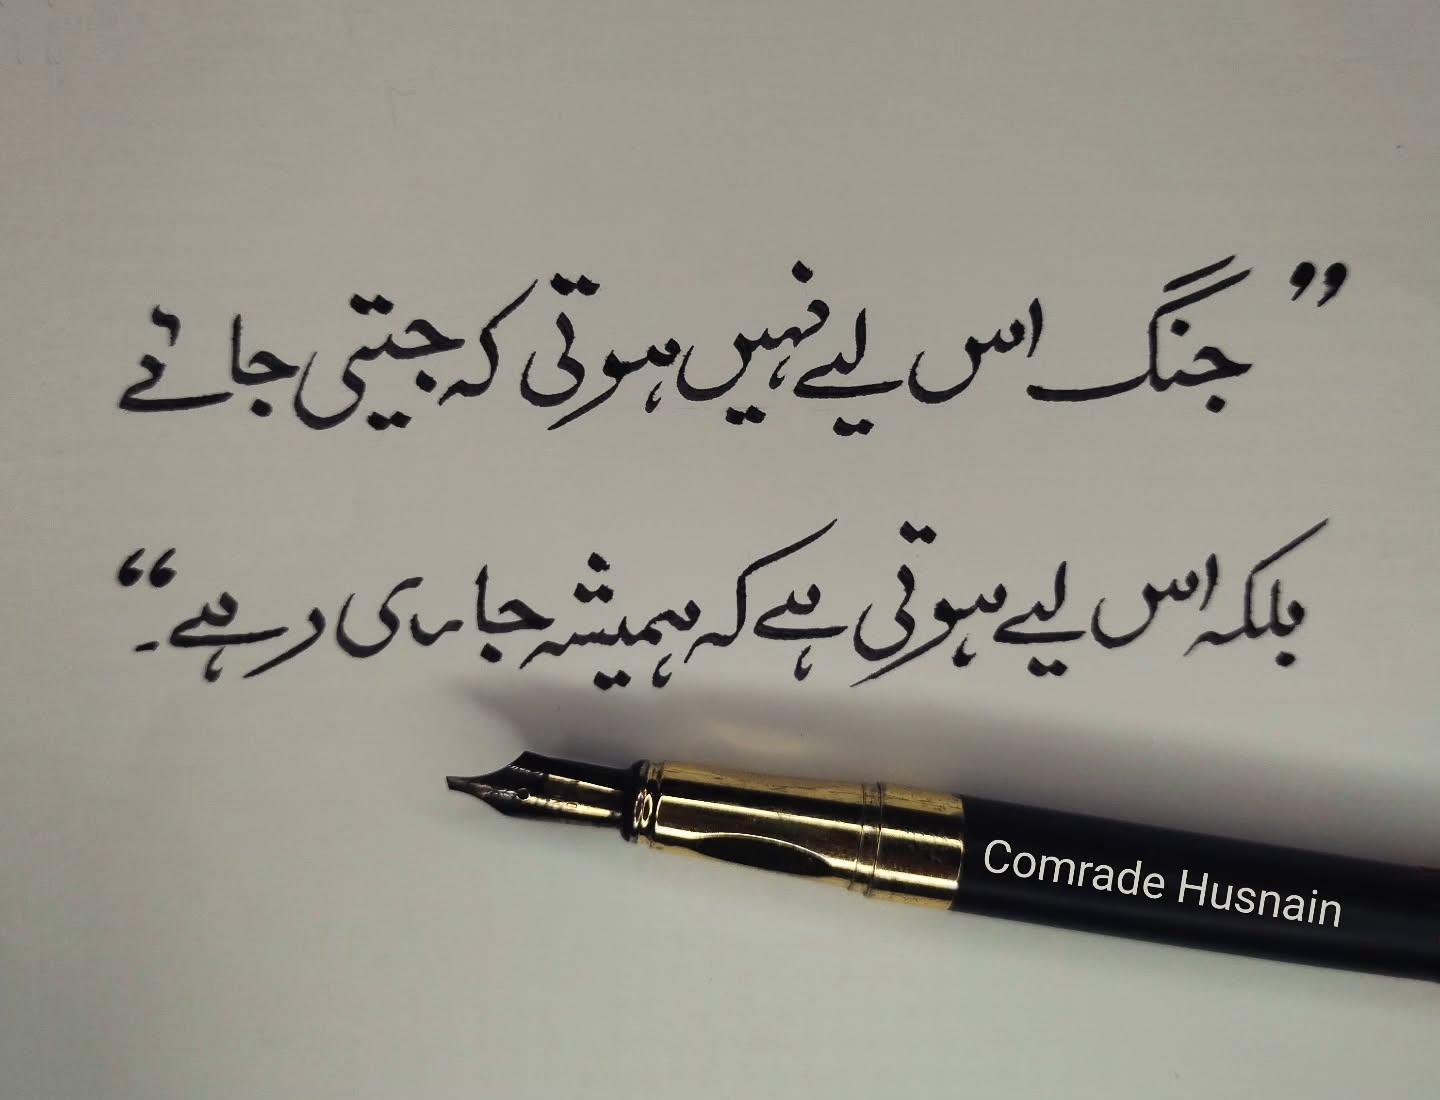 ”جنگ اس لیے نہیں ہوتی کہ جیتی جائے
بلکہ اس لیے ہوتی ہے کہ ہمیشہ جاری رہے۔“
Comrade Husnain